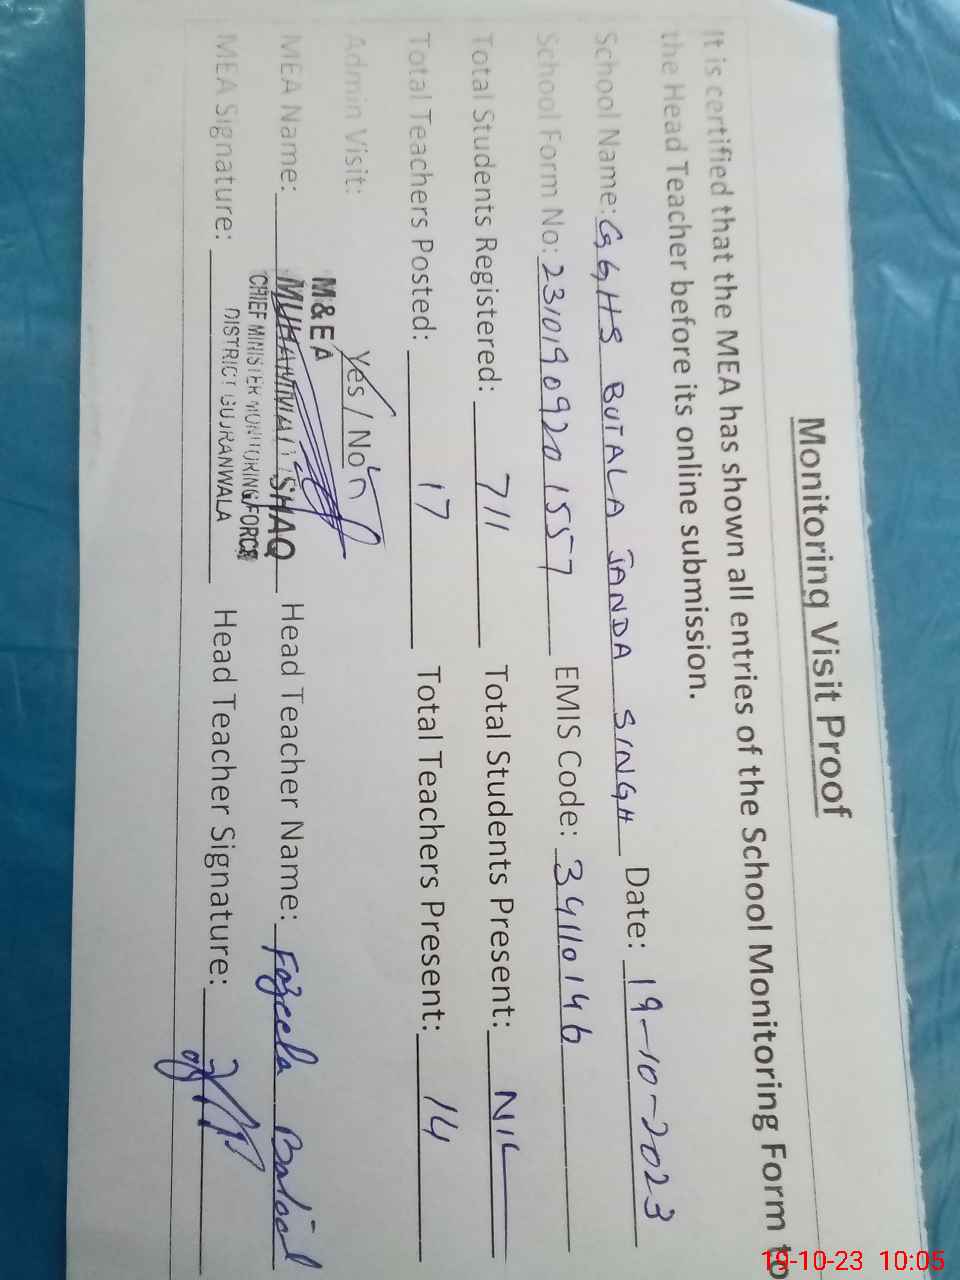 Monitoring Visit Proof
It is certified that the MEA has shown all entries of the School Monitoring Form to
the Head Teacher before its online submission.
School Name: GGHS BUTALA JANDA SINGH Date: 19-10-2023
School Form No: 2310190920 1557 EMIS Code: 34110146
Total Students Registered: 711 Total Students Present: NIL
Total Teachers Posted: 17 Total Teachers Present: 14
Admin Visit: Yes / No
M&EA
MEA Name: MUHAMMAD ISHAQ Head Teacher Name: Fozeela
CHIEF MINISTER MONITORING FORCE
DISTRICT GUJRANWALA
MEA Signature: Head Teacher Signature:
19-10-23 10:05